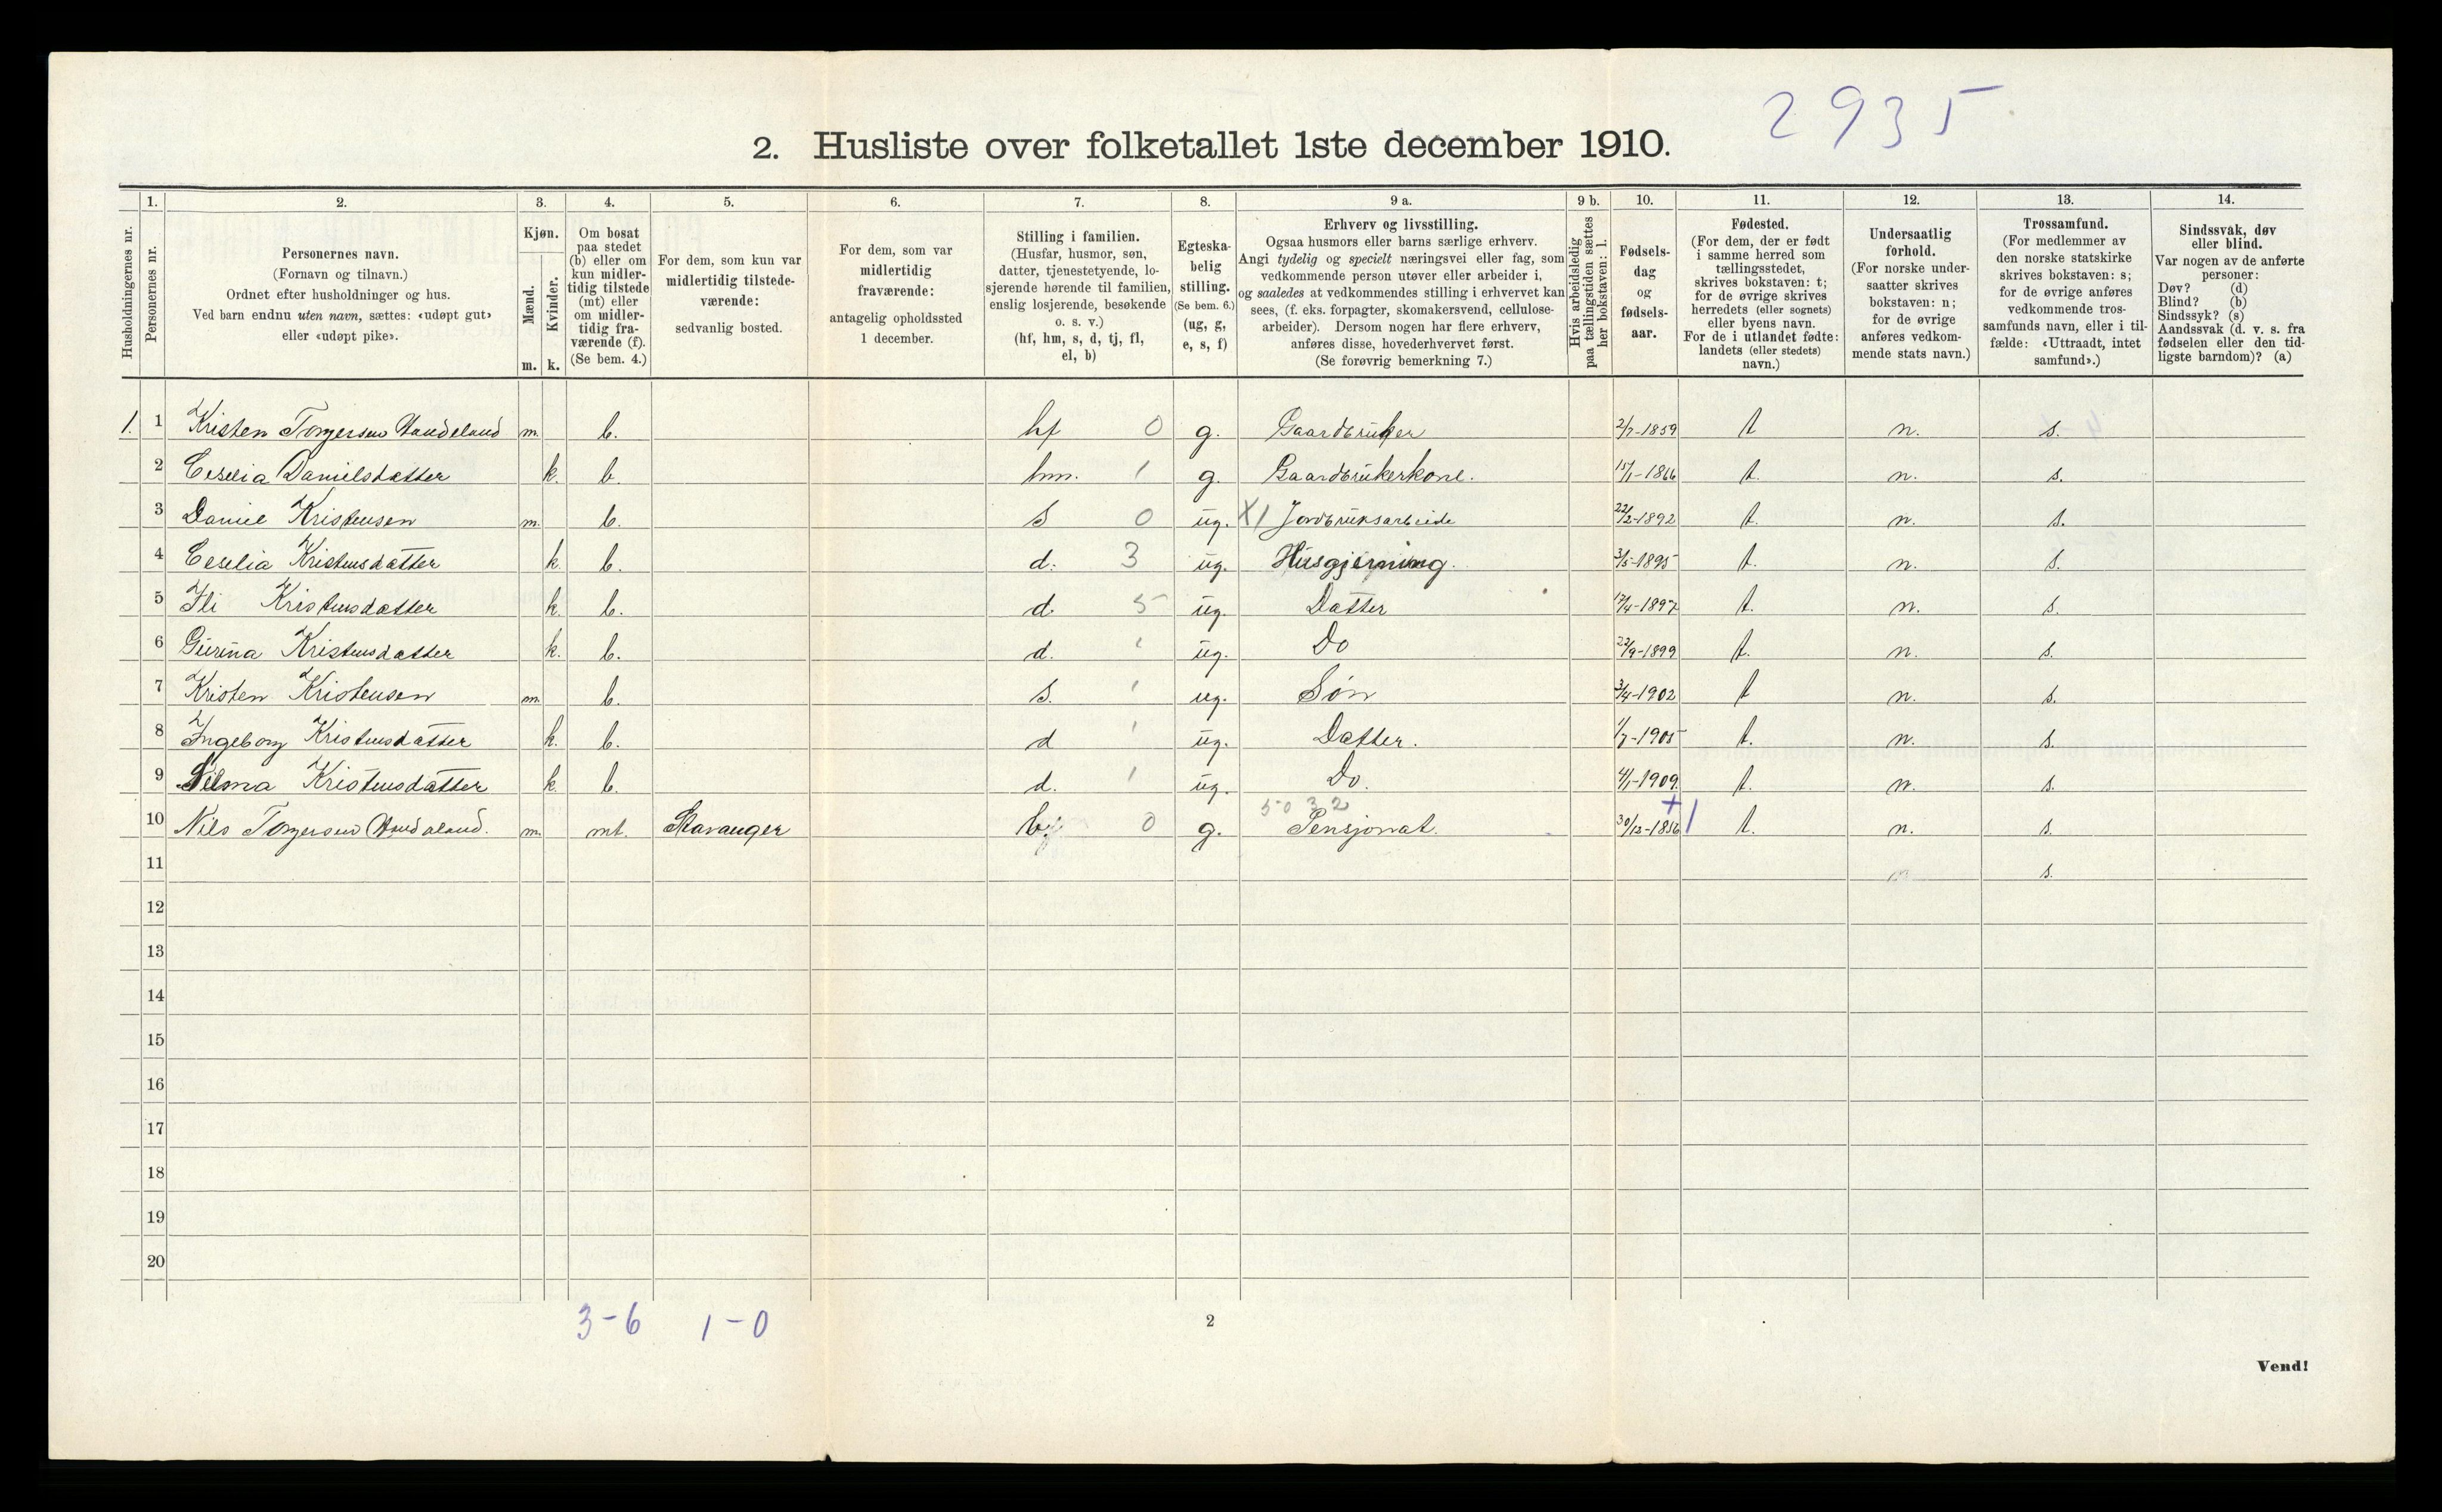 2935
2. Husliste over folketallet 1ste december 1910.
Husholdningernes nr.
1.
Personernes nr.
2.
Personernes navn.
(Fornavn og tilnavn.)
Ordnet efter husholdninger og hus.
Ved barn endnu uten navn, sættes: «udøpt gut»
eller «udøpt pike».
3.
Kjøn.
Mænd.
Kvinder.
m. k.
4.
Om bosat
paa stedet
(b) eller om
kun midler-
tidig tilstede
(mt) eller
om midler-
tidig fra-
værende (f).
(Se bem. 4.)
5.
For dem, som kun var
midlertidig tilstede-
værende:
sedvanlig bosted.
6.
For dem, som var
midlertidig
fraværende:
antagelig opholdssted
1 december.
7.
Stilling i familien.
(Husfar, husmor, søn,
datter, tjenestetyende, lo-
sjerende hørende til familien,
enslig losjerende, besøkende
o. s. v.)
(hf, hm, s, d, tj, fl,
el, b)
8.
Egteska-
belig
stilling.
(Se bem. 6.)
(ug, g,
e, s, f)
9 a.
Erhverv og livsstilling.
Ogsaa husmors eller barns særlige erhverv.
Angi tydelig og specielt næringsvei eller fag, som
vedkommende person utøver eller arbeider i,
og saaledes at vedkommendes stilling i erhvervet kan
sees, (f. eks. forpagter, skomakersvend, cellulose-
arbeider). Dersom nogen har flere erhverv,
anføres disse, hovederhvervet først.
(Se forøvrig bemerkning 7.)
9 b.
Hvis arbeidsledig
paa tællingstiden sættes
her bokstaven: l.
10.
Fødsels-
dag
og
fødsels-
aar.
11.
Fødested.
(For dem, der er født
i samme herred som
tællingsstedet,
skrives bokstaven: t;
for de øvrige skrives
herredets (eller sognets)
eller byens navn.
For de i utlandet fødte:
landets (eller stedets)
navn.)
12.
Undersaatlig
forhold.
(For norske under-
saatter skrives
bokstaven: n;
for de øvrige
anføres vedkom-
mende stats navn.)
13.
Trossamfund.
(For medlemmer av
den norske statskirke
skrives bokstaven: s;
for de øvrige anføres
vedkommende tros-
samfunds navn, eller i til-
fælde: «Uttraadt, intet
samfund».)
14.
Sindssvak, døv
eller blind.
Var nogen av de anførte
personer:
Døv? (d)
Blind? (b)
Sindssyk? (s)
Aandssvak (d. v. s. fra
fødselen eller den tid-
ligste barndom)? (a)
1. 1 Kristen Torgersen m. b. hf 0 g. Gaardbruker 2/7-1859 t n. s.
2 Ceselia Danielsdatter k. b. hm. 1 g. Gaardbrukerkone. 15/1-1866 t. n. s.
3 Daniel Kristensen m. b. s 0 ug. X1 Jordbruksarbeide 22/2-1892 t. n. s.
4 Ceselia Kristensdatter k. b. d. 3 ug. Husgjerning. 3/5-1895 t. n. s.
5 Ili Kristensdatter k. b. d. 5 ug. Datter 17/4-1897 t. n. s.
6 Gurina Kristensdatter k. b. d. 1 ug. Do 22/9-1899 t. n. s.
7 Kristen Kristensen m. b. s. 1 ug. Søn 3/4-1902 t n. s.
8 Ingeborg Kristensdatter k. b. d 1 ug. Datter. 1/7-1905 t. n. s.
9 Kristensdatter k. b. d. 1 ug. Do. 4/1-1909. t. n. s.
5032
10 Nils Torgersen m. mt. Stavanger b. 0 g. Pensjonat. 30/12-1856 +1 t. n. s.
11 n s.
12
13
14
15
16
17
18
19
20
3-6 1-0
2
Vend!